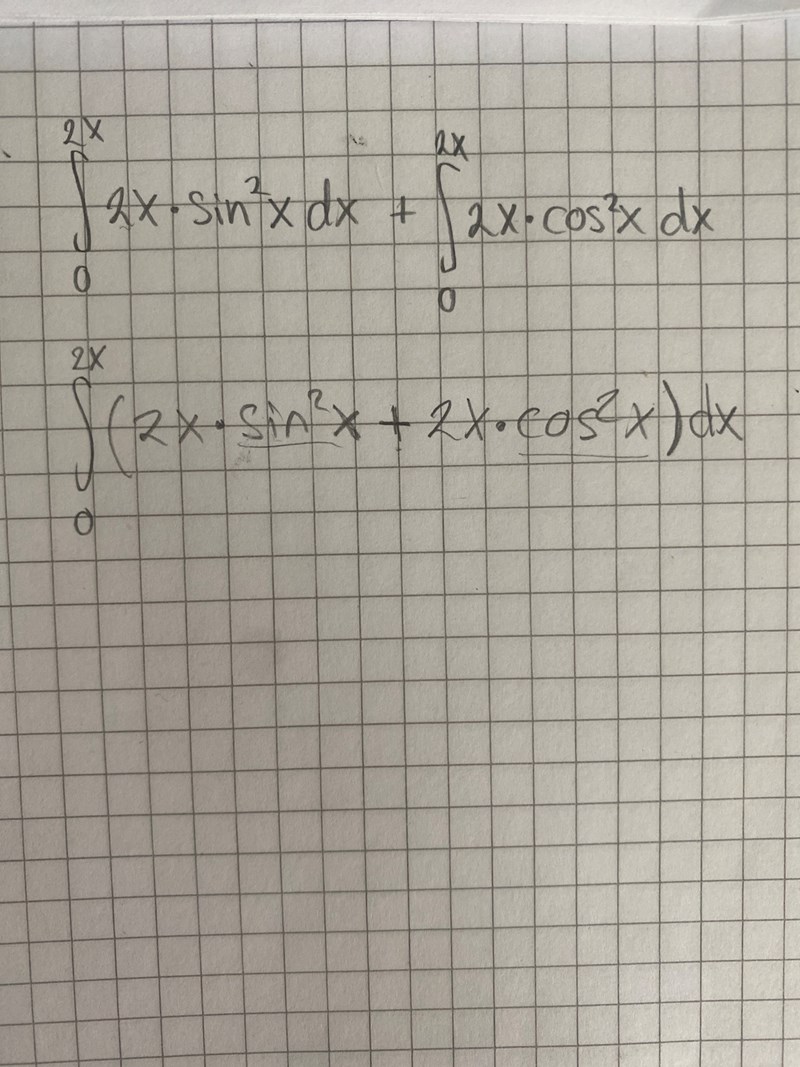 ∫₀²ˣ 2x · sin²x dx + ∫₀²ˣ 2x · cos²x dx
∫₀²ˣ (2x · sin²x + 2x · cos²x) dx